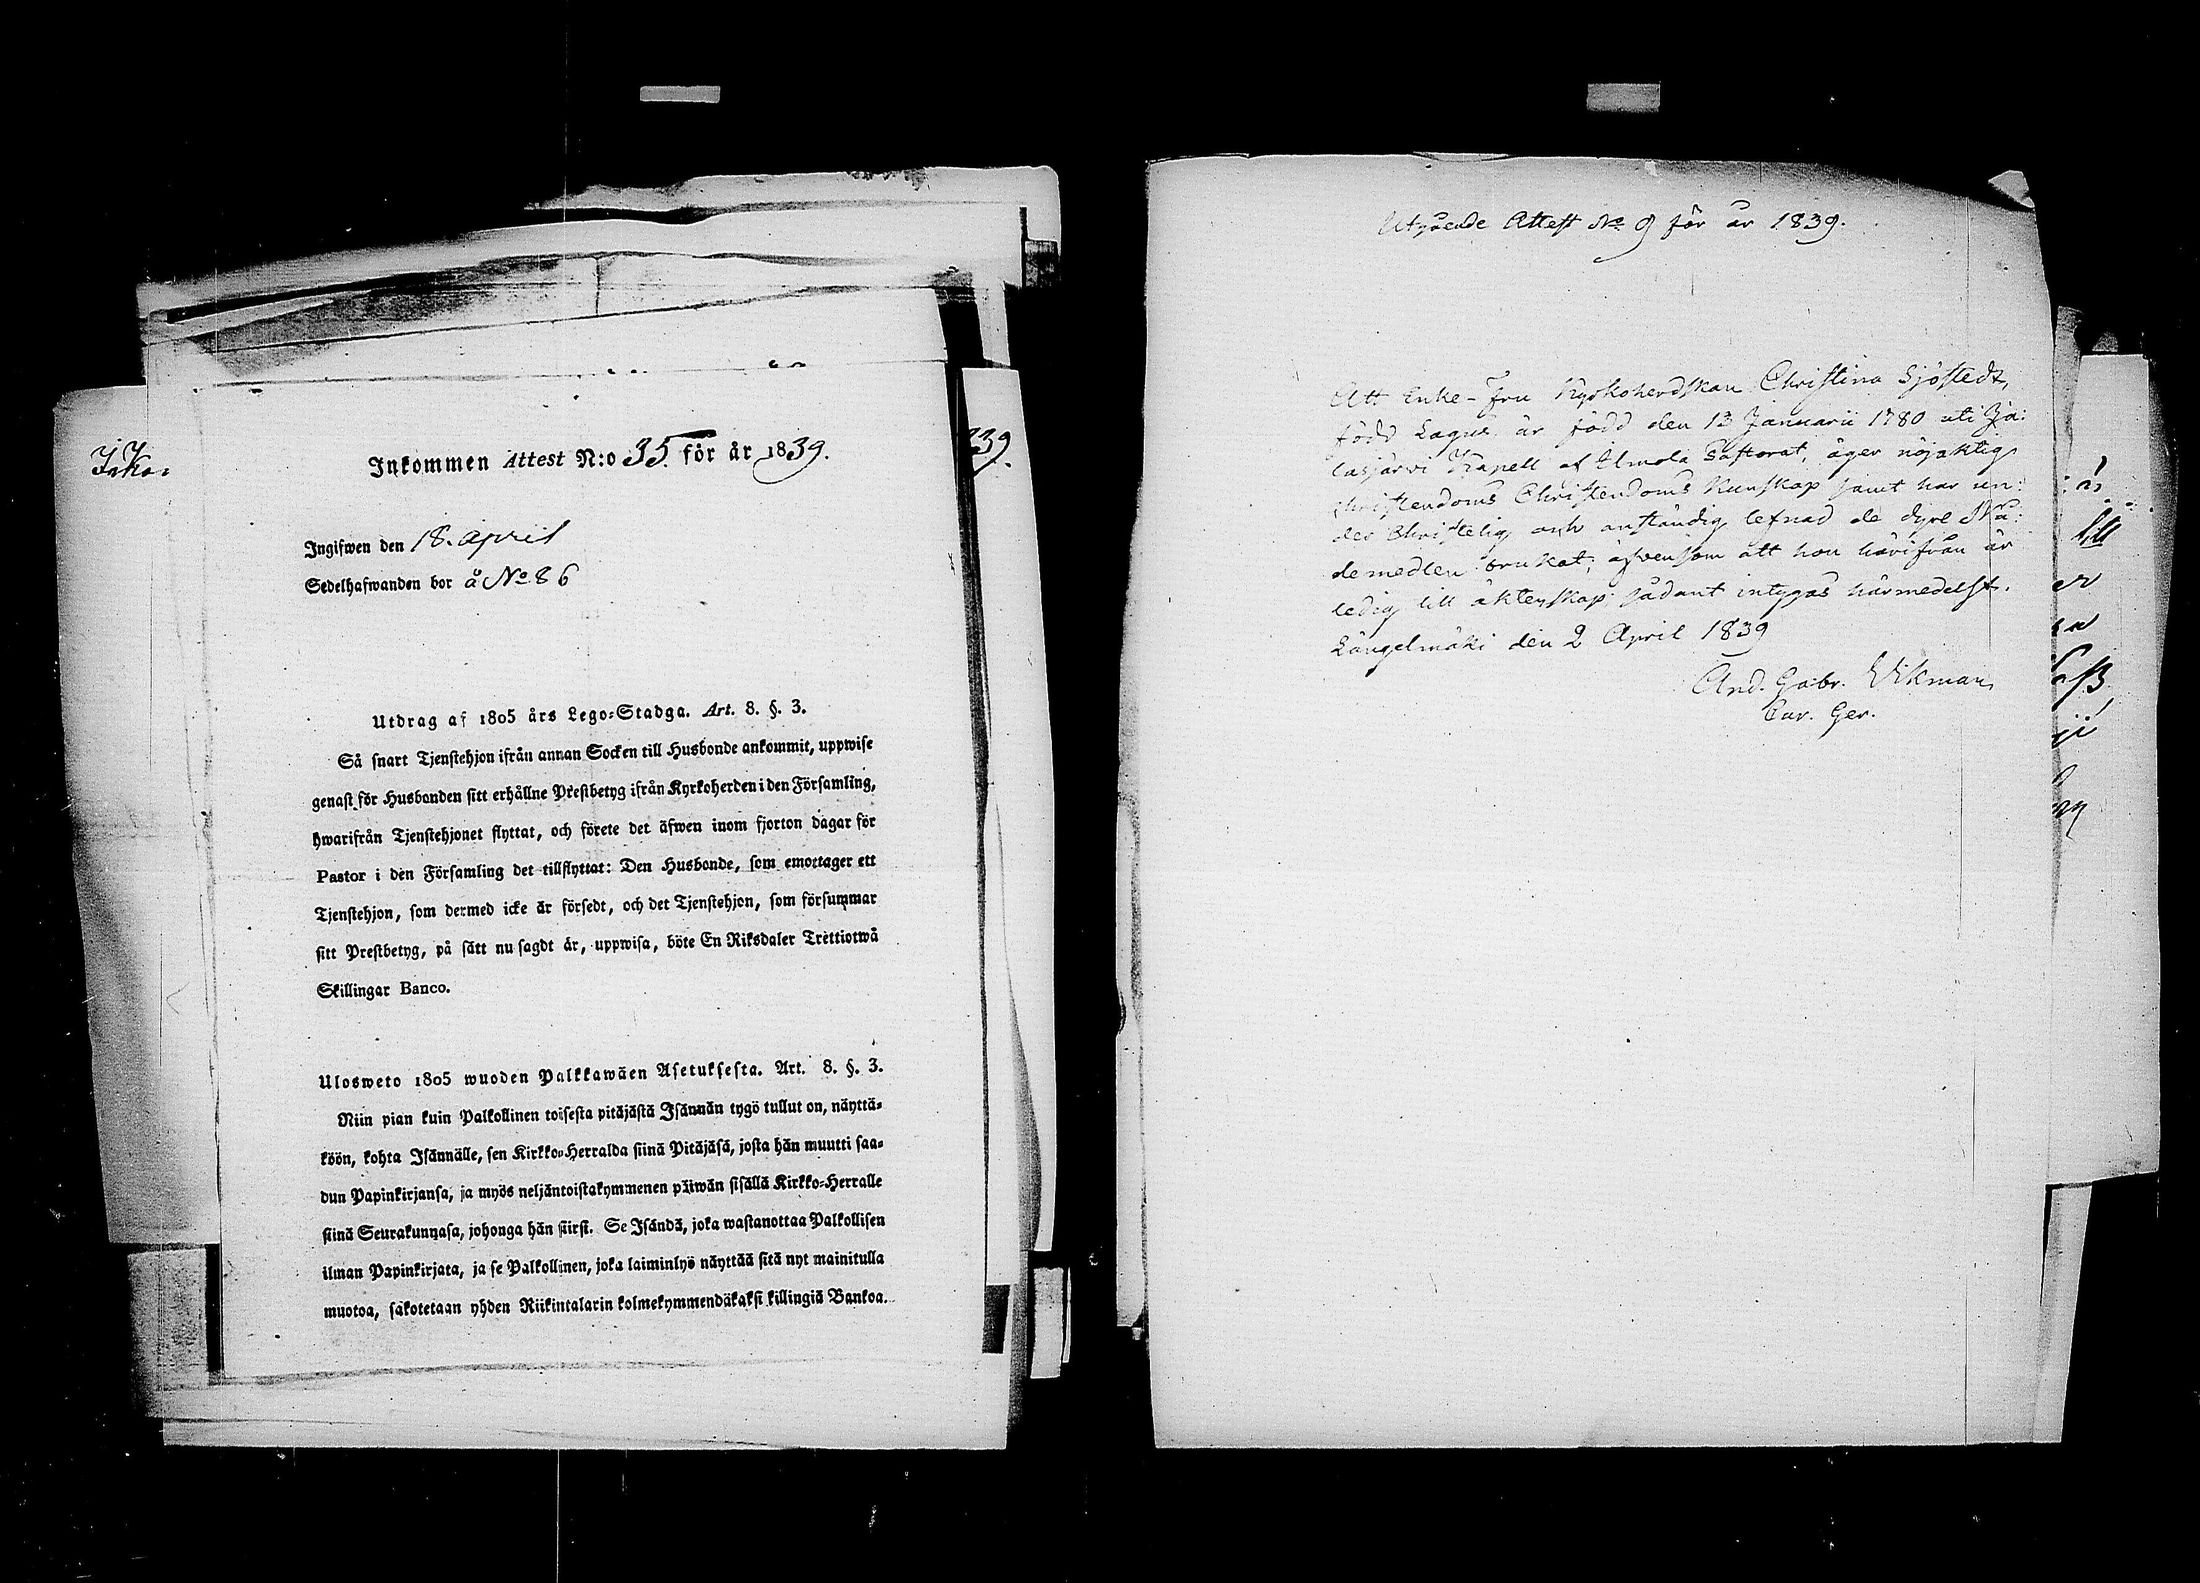 Inkommen Attest N:o 35. för år 1839.
Ingifwen den 18. april
Sedelhafwanden bor å No 86
Utdrag af 1805 års Lego-Stadga. Art. 8. §. 3.
Så snart Tjenstehjon ifrån annan Socken till Husbonde ankommit, uppwise
genast för Husbonden sitt erhållne Prestbetyg ifrån Kyrkoherden i den Församling,
hwarifrån Tjenstehjonet flyttat, och förete det äfwen inom fjorton dagar för
Pastor i den Församling det tillflyttat: Den Husbonde, som emottager ett
Tjenstehjon, som dermed icke är försedt, och det Tjenstehjon, som försummar
sitt Prestbetyg, på sätt nu sagdt är, uppwisa, böte En Riksdaler Trettiotwå
Skillingar Banco.
Ulosweto 1805 wuoden Palkkawäen Asetuksesta. Art. 8. §. 3.
Niin pian kuin Palkollinen toisesta pitäjästä Isännän tygö tullut on, näyttä-
köön, kohta Isännälle, sen Kirkko-Herralda siinä Pitäjäsä, josta hän muutti saa-
dun Papinkirjansa, ja myös neljäntoistakymmenen päiwän sisällä Kirkko-Herralle
siinä Seurakunnasa, johonga hän siirsi. Se Isändä, joka wastanottaa Palkollisen
ilman Papinkirjata, ja se Palkollinen, joka laiminlyö näyttää sitä nyt mainitulla
muotoa, sakotetaan yhden Riikintalarin kolmekymmendäkaksi killingiä Bankoa.
Utgående Attest No 9 för år 1839.
Att Enke-Fru Kyrkoherdskan Christina Sjöstedt,
född Lagus är född den 13 Januarii 1780 uti Ja:
lasjärvi Kapell af Ilmola Pastorat, äger nöjaktig
christendoms Christendoms Kunskap samt har un:
der Christelig och anständig lefnad de dyre Nå:
demedlen brukat; äfvensom att hon härifrån är
ledig till äktenskap; sådant intygas härmedelst.
Längelmäki den 2 April 1839
And. Gabr. Wikman
Cur. Ger.
339.